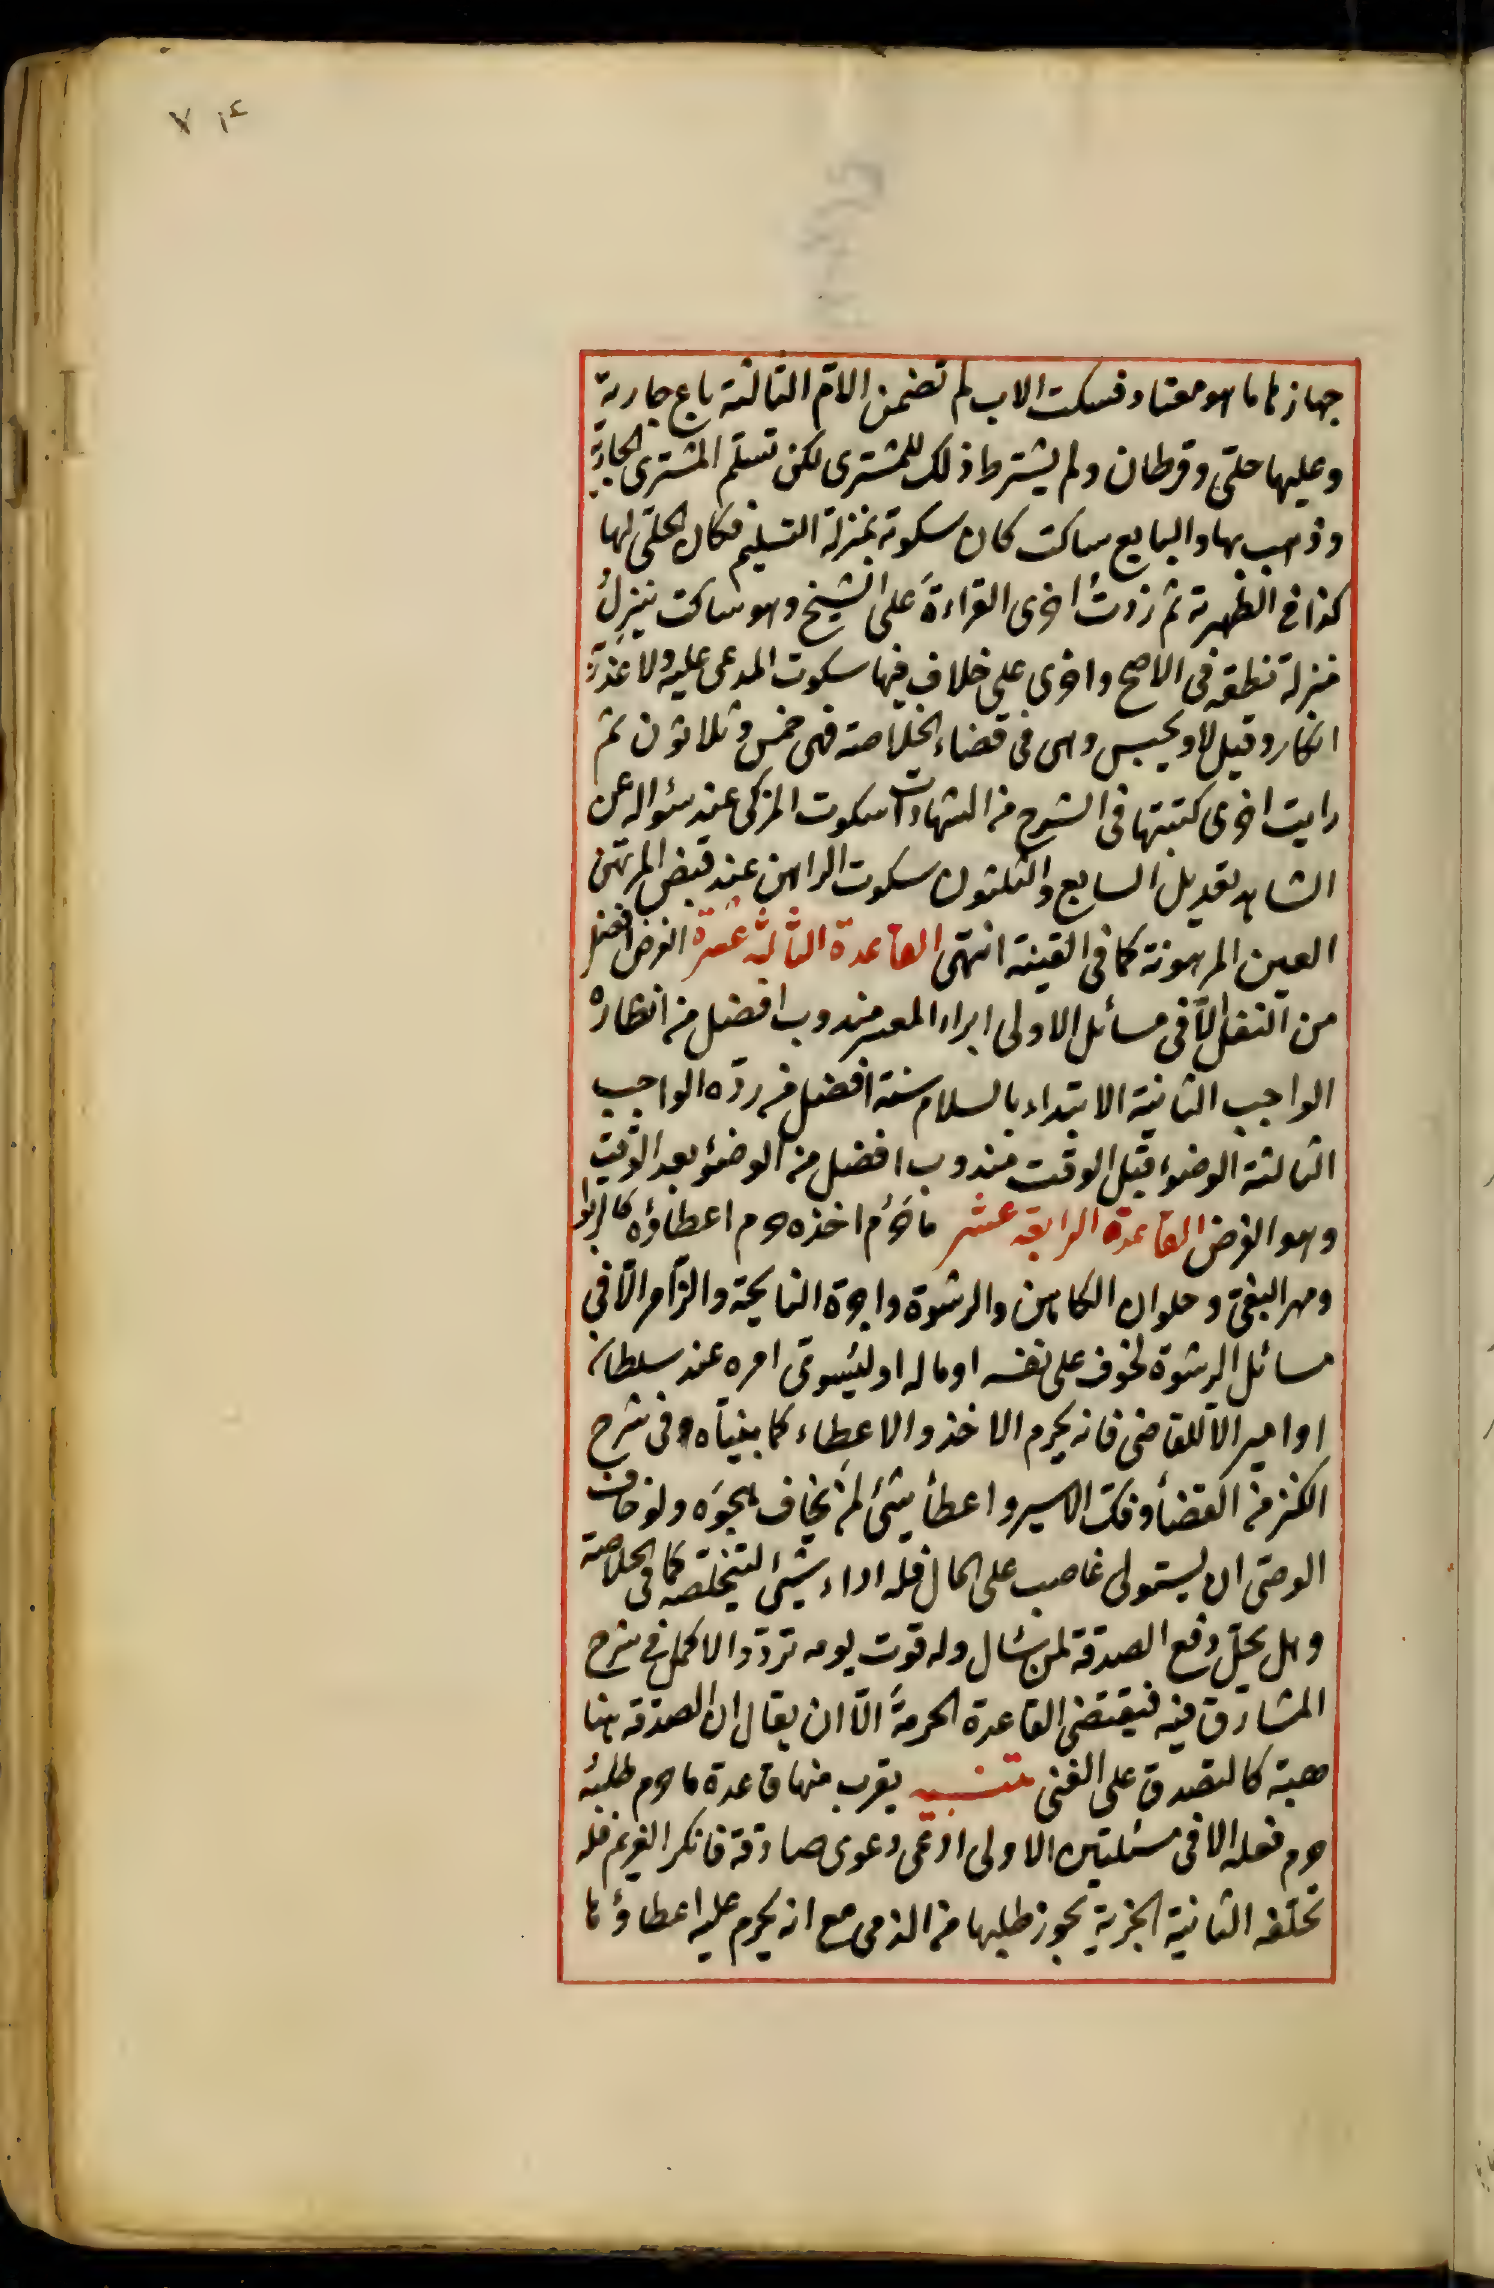 جهازها ما هو معتاد فسكت الاب لم تضمن الام الثالثة باع جارية
وعليها حلى وقرطان ولم يشترط ذلك للمشترى لكن تسلم المشترى الجارية
وذهب بها والبايع ساكت كان سكوته بمنزلة التسليم فكان الحلى لها
كذا فى الظهيرية ثم زدت اخرى القراءة على الشيخ وهو ساكت ينزل
منزلة نطقه فى الاصح واخرى على خلاف فيها سكوت المدعى عليه ولا عذر به
انكار وقيل لا ويحبس وهى فى قضاء الخلاصة فهى خمس وثلاثون ثم
رايت اخرى كتبتها فى الشرح من الشهادات سكوت المزكى عند سؤاله عن
الشاهد تعديل السابع والثلثون سكوت الراهن عند قبض المرتهن
العين المرهونة كما فى القنية انتهى القاعدة الثالثة عشرة الفرض افضل
من النفل الا فى مسائل الاولى ابراء المعسر مندوب افضل من انظاره
الواجب الثانية الابتداء بالسلام سنة افضل من رده الواجب
الثالثة الوضوء قبل الوقت مندوب افضل من الوضوء بعد الوقت
وهو الفرض القاعدة الرابعة عشر ما حرم اخذه حرم اعطاؤه كالربوا
ومهر البغى وحلوان الكاهن والرشوة واجرة النايحة والزامر الا فى
مسائل الرشوة لخوف على نفسه او ماله او ليسوى امره عند سلطان
او امير الا للقاضى فانه يحرم الاخذ والاعطاء كما بيناه وفى شرح
الكنز من القضا وفك الاسير واعطا شئ لمن يخاف هجوه ولو خاف
الوصى ان يستولى غاصب على المال فله اداء شئ ليخلصه كما فى الخلاصة
وهل يحل دفع الصدقة لمن سال وله قوت يومه تردد الاكمل فى شرح
المشارق فيه فيقتضى القاعدة الحرمة الا ان يقال ان الصدقة هنا
هبة كالتصدق على الغنى تنبيه يقرب منها قاعدة ما حرم طلبه
حرم فعله الا فى مسئلتين الاولى ادعى دعوى صادقة فانكر الغريم فله
تحلفه الثانية الجزية يجوز طلبها من الذمى مع انه يحرم عليه اعطاؤها